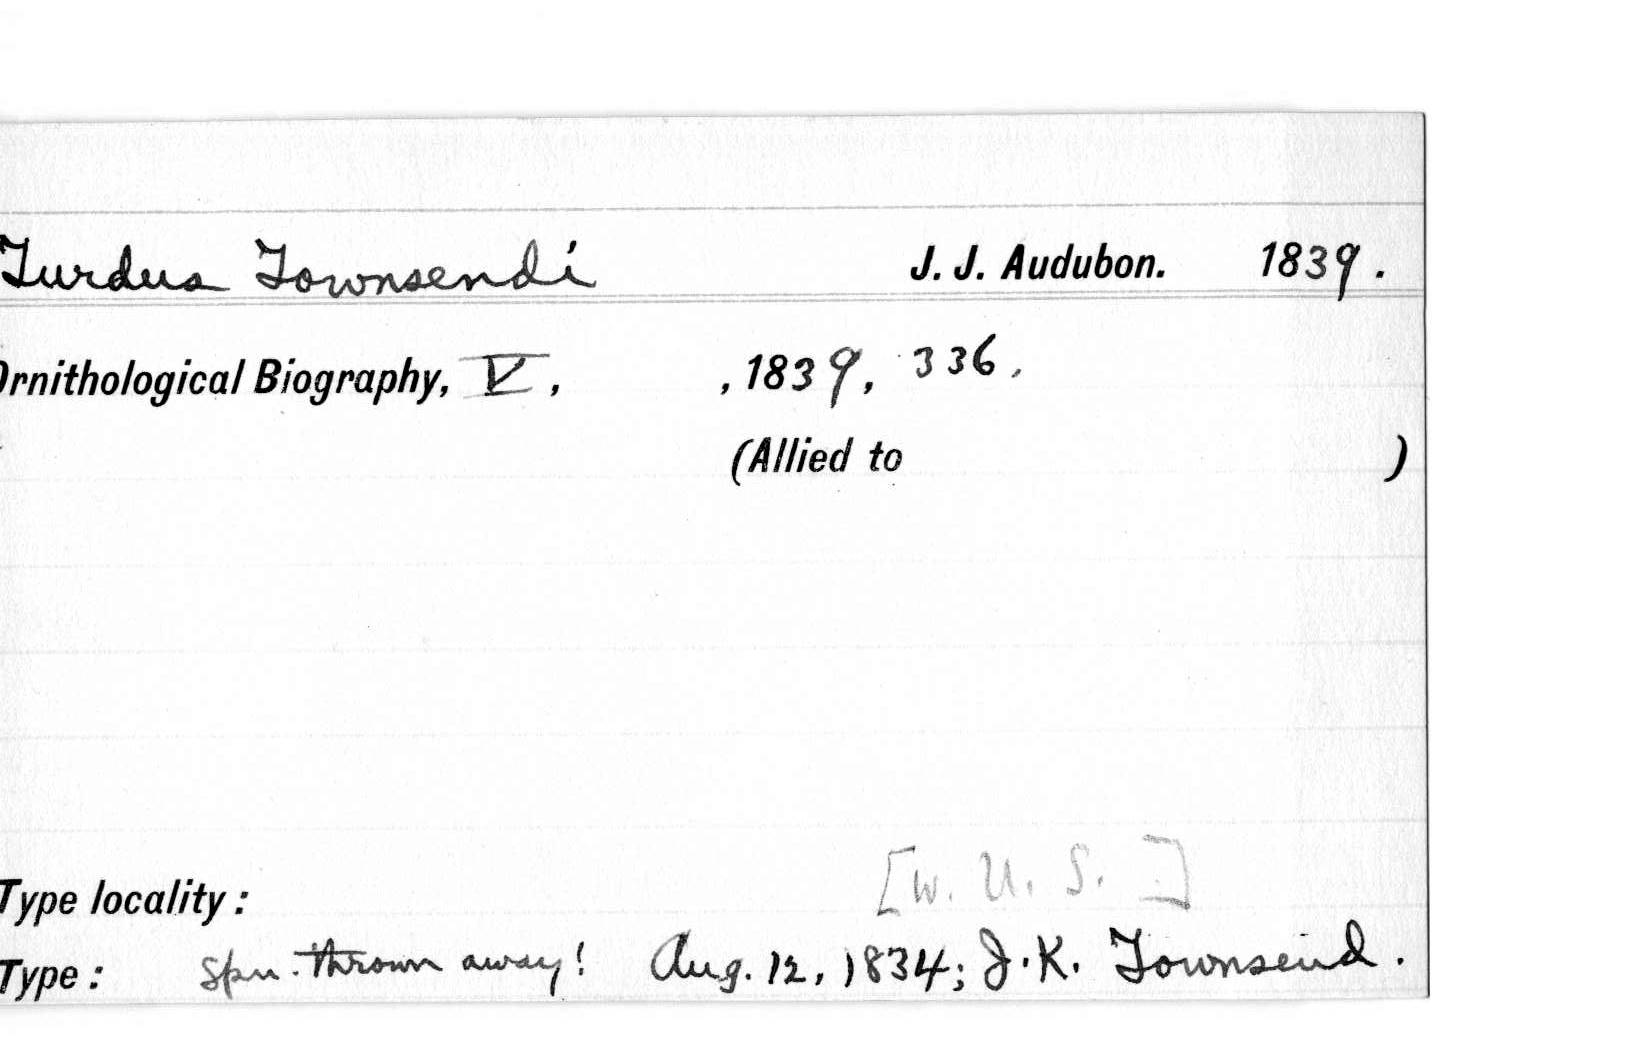 Turdus Townsendi J. J. Audubon. 1839.
Ornithological Biography, V, , 1839, 336.
(Allied to )
[W. U. S. ]
Type locality :
Type : Spm. thrown away! Aug. 12, 1834; J. K. Townsend.